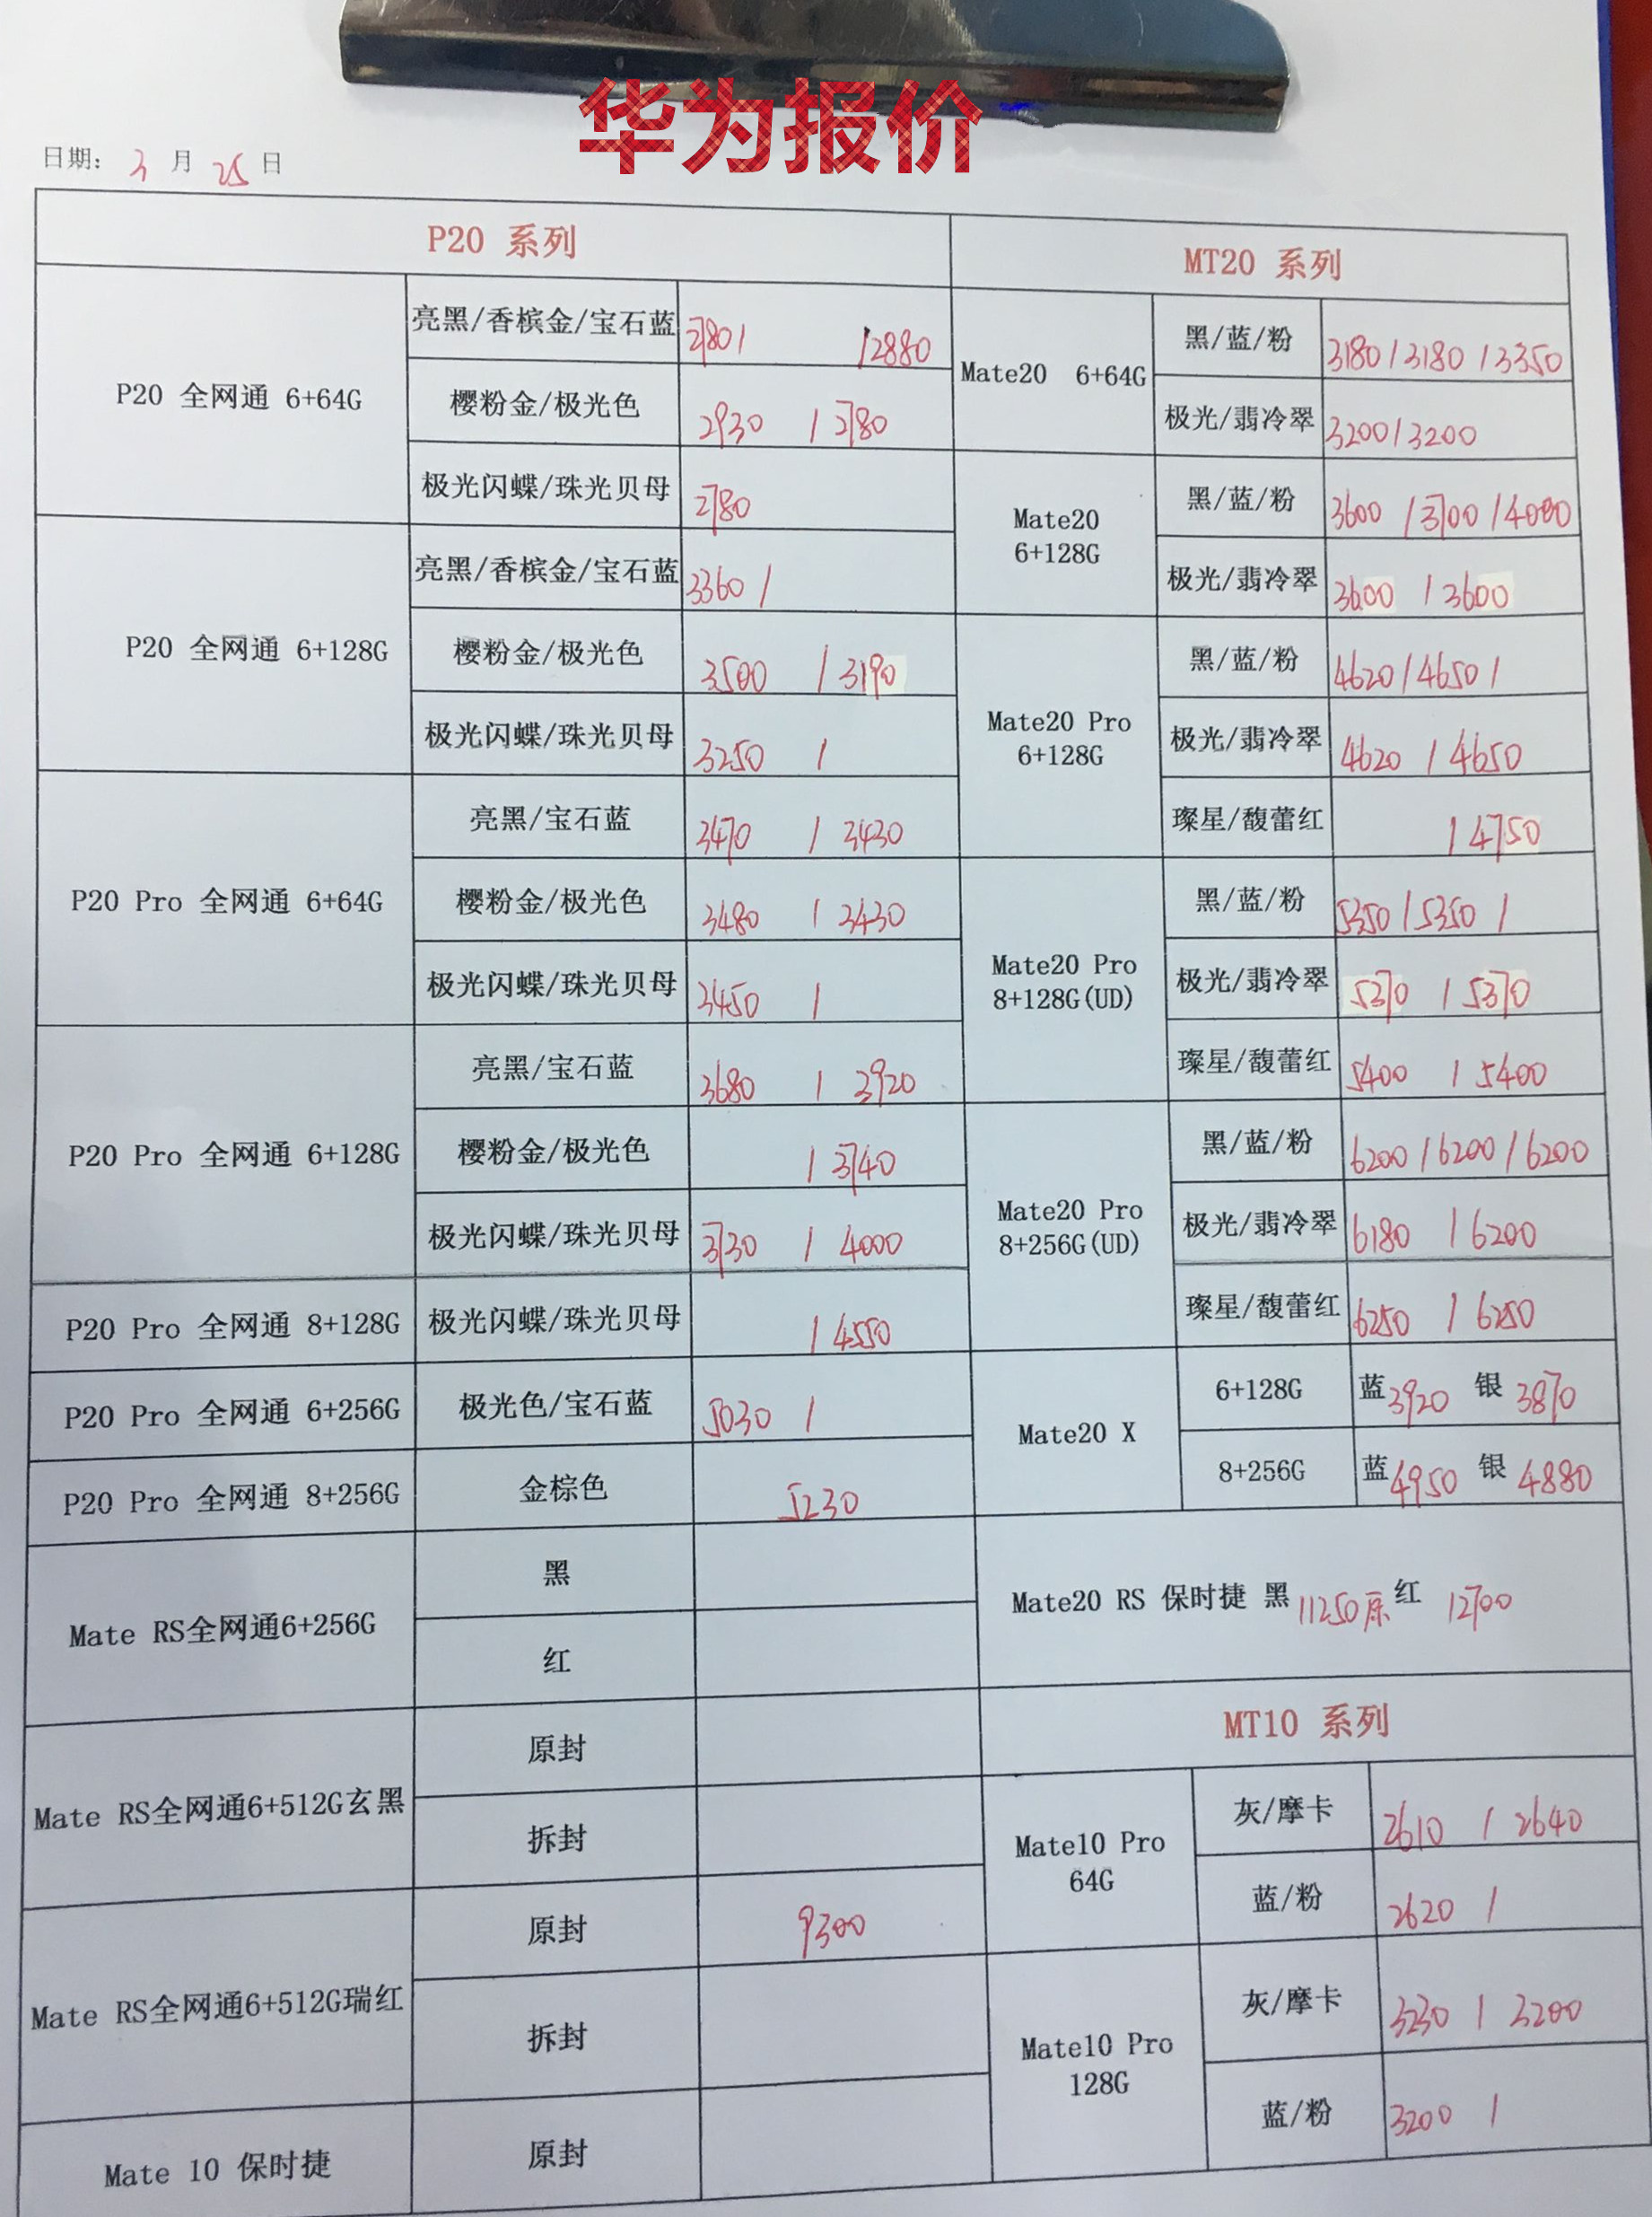 华为报价
日期: 3 月 25 日
P20 系列
P20 全网通 6+64G
亮黑/香槟金/宝石蓝 2780/ /2880
樱粉金/极光色 2930 / 2780
极光闪蝶/珠光贝母 2780
P20 全网通 6+128G
亮黑/香槟金/宝石蓝 3360 /
樱粉金/极光色 3500 / 3190
极光闪蝶/珠光贝母 3250 /
P20 Pro 全网通 6+64G
亮黑/宝石蓝 3470 / 3430
樱粉金/极光色 3480 / 3430
极光闪蝶/珠光贝母 3450 /
P20 Pro 全网通 6+128G
亮黑/宝石蓝 3680 / 3920
樱粉金/极光色 / 3740
极光闪蝶/珠光贝母 3730 / 4000
P20 Pro 全网通 8+128G 极光闪蝶/珠光贝母 / 4550
P20 Pro 全网通 6+256G 极光色/宝石蓝 5030 /
P20 Pro 全网通 8+256G 金棕色 5230
Mate RS全网通6+256G
黑
红
Mate RS全网通6+512G玄黑
原封
拆封
Mate RS全网通6+512G瑞红
原封 9300
拆封
Mate 10 保时捷 原封
MT20 系列
Mate20 6+64G
黑/蓝/粉 3180/3180/3350
极光/翡冷翠 3200/3200
Mate20
6+128G
黑/蓝/粉 3600 /3700/4000
极光/翡冷翠 3600 / 3600
Mate20 Pro
6+128G
黑/蓝/粉 4620/4650/
极光/翡冷翠 4620 / 4650
璨星/馥蕾红 / 4750
Mate20 Pro
8+128G(UD)
黑/蓝/粉 5350/5350 /
极光/翡冷翠 5370 / 5370
璨星/馥蕾红 5400 / 5400
Mate20 Pro
8+256G(UD)
黑/蓝/粉 6200/6200/6200
极光/翡冷翠 6180 / 6200
璨星/馥蕾红 6250 / 6250
Mate20 X
6+128G 蓝 3920 银 3870
8+256G 蓝 4950 银 4880
Mate20 RS 保时捷 黑 11250原 红 12700
MT10 系列
Mate10 Pro
64G
灰/摩卡 2610 / 2640
蓝/粉 2620 /
Mate10 Pro
128G
灰/摩卡 3230 / 3200
蓝/粉 3200 /